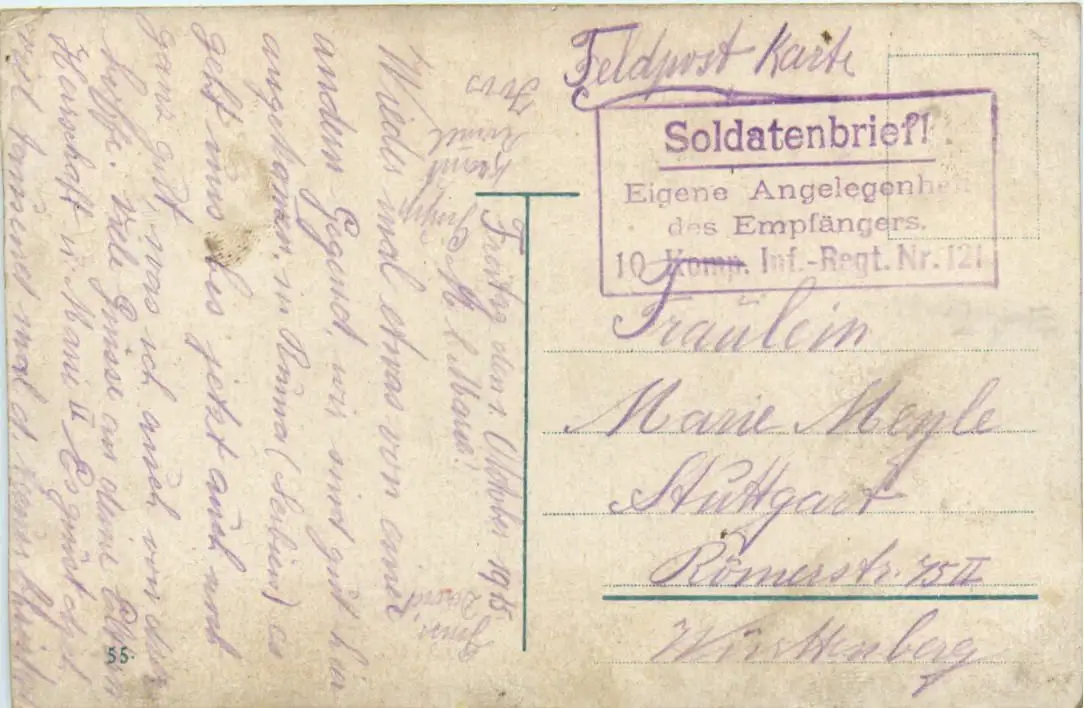 Feldpost Karte
Soldatenbrief!
Eigene Angelegenheit
des Empfängers.
10 Komp. Inf.-Regt. Nr. 121.
Fräulein
Marie Meyle
Stuttgart
Römerstr. 75 II
Württenberg
Freitag den 1. Oktober 1915
M. l. Marie!
Wieder mal etwas von einer
andern Gegend, wir sind gut hier
angekommen, in (Serbien) es
geht mir bis jetzt auch noch
ganz gut, was ich auch von dir
hoffe. Viele Grüsse an deine Eltern
Herrschaft u. Marie II Es grüst dich
viel mal d.
55.